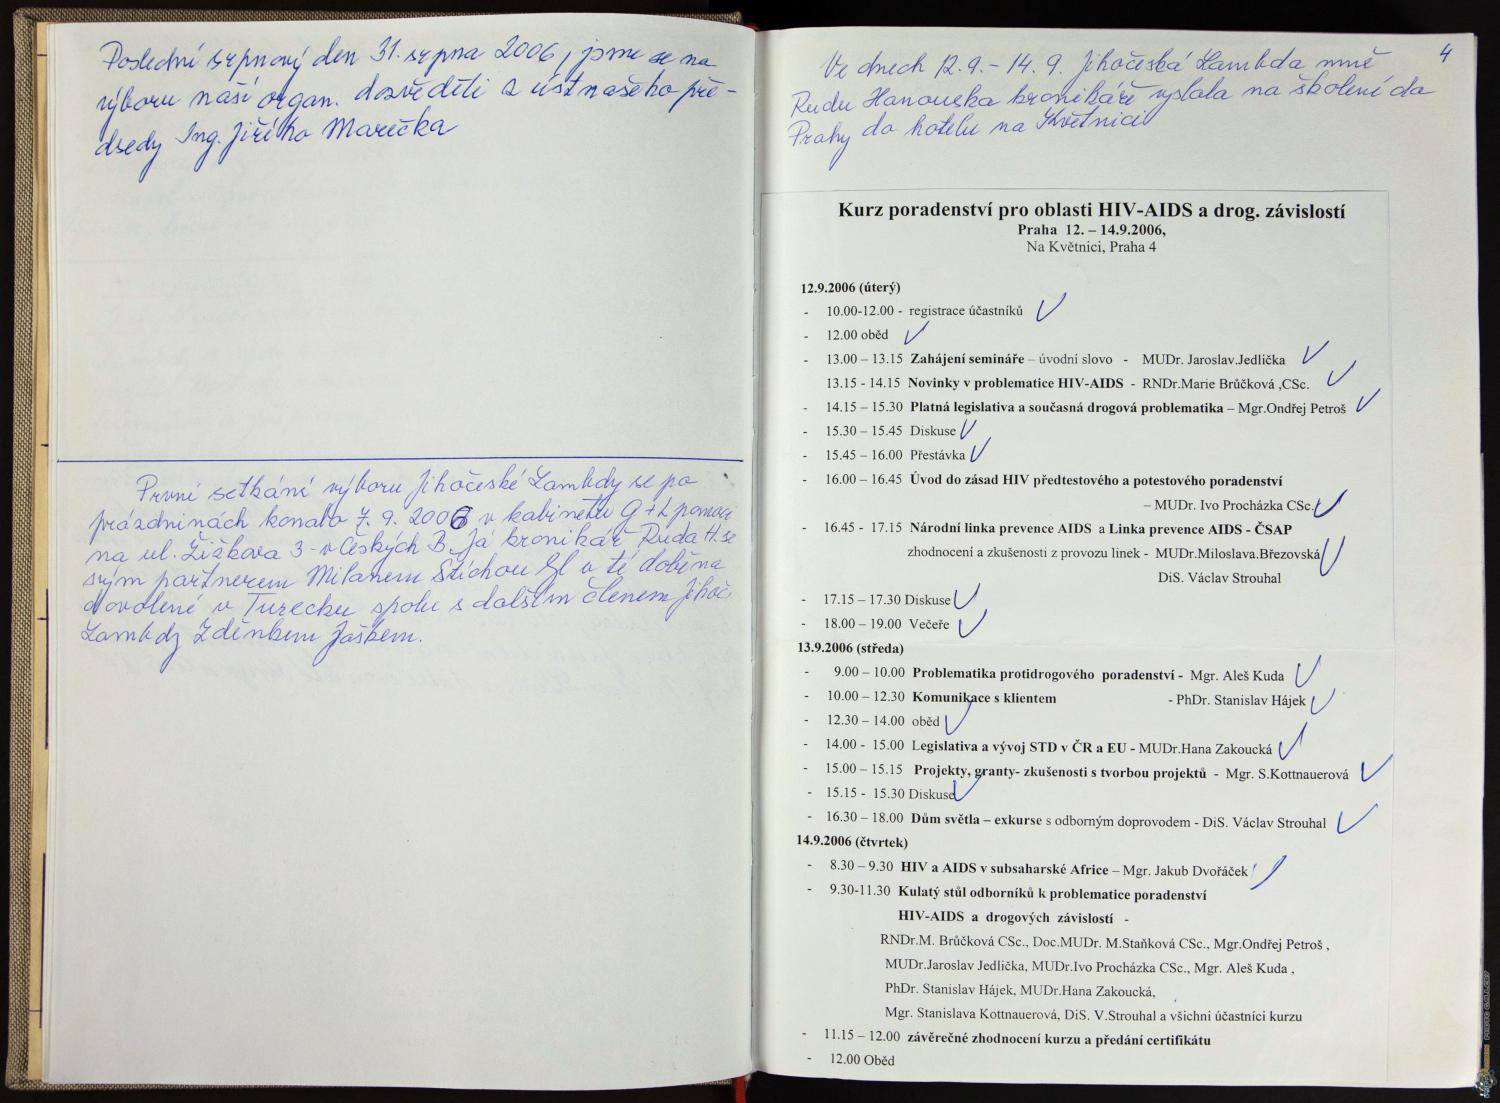 Poslední srpnový den 31. srpna 2006, jsme se na
výboru naší organ. dozvěděli z úst našeho pře-
dsedy Ing. Jiřího Marečka
První setkání výboru Jihočeské Lambdy se po
prázdninách konalo 7. 9. 2006 v kabinetu G+L pomoci
na ul. Žižkova 3 - v Českých B. Já kronikář Ruda H. se
svým partnerem Milanem Stichou v té době na
dovolené v Turecku spolu s dalším členem Jihoč.
Lambdy Zdeňkem Jaškem.
4
Ve dnech 12.9. - 14.9. Jihočeská Lambda mně
Rudu Hanouska kronikáře vyslala na školení do
Prahy do hotelu na Květnici
Kurz poradenství pro oblasti HIV-AIDS a drog. závislostí
Praha 12. – 14.9.2006,
Na Květnici, Praha 4
12.9.2006 (úterý)
- 10.00-12.00 - registrace účastníků
- 12.00 oběd
- 13.00 – 13.15 Zahájení semináře – úvodní slovo - MUDr. Jaroslav.Jedlička
13.15 - 14.15 Novinky v problematice HIV-AIDS - RNDr.Marie Brůčková ,CSc.
- 14.15 – 15.30 Platná legislativa a současná drogová problematika – Mgr.Ondřej Petroš
- 15.30 – 15.45 Diskuse
- 15.45 – 16.00 Přestávka
- 16.00 – 16.45 Úvod do zásad HIV předtestového a potestového poradenství
– MUDr. Ivo Procházka CSc.
- 16.45 - 17.15 Národní linka prevence AIDS a Linka prevence AIDS - ČSAP
zhodnocení a zkušenosti z provozu linek - MUDr.Miloslava.Březovská
DiS. Václav Strouhal
- 17.15 – 17.30 Diskuse
- 18.00 – 19.00 Večeře
13.9.2006 (středa)
- 9.00 – 10.00 Problematika protidrogového poradenství - Mgr. Aleš Kuda
- 10.00 – 12.30 Komunikace s klientem - PhDr. Stanislav Hájek
- 12.30 – 14.00 oběd
- 14.00 - 15.00 Legislativa a vývoj STD v ČR a EU - MUDr.Hana Zakoucká
- 15.00 – 15.15 Projekty, granty- zkušenosti s tvorbou projektů - Mgr. S.Kottnauerová
- 15.15 - 15.30 Diskuse
- 16.30 – 18.00 Dům světla – exkurse s odborným doprovodem - DiS. Václav Strouhal
14.9.2006 (čtvrtek)
- 8.30 – 9.30 HIV a AIDS v subsaharské Africe – Mgr. Jakub Dvořáček
- 9.30-11.30 Kulatý stůl odborníků k problematice poradenství
HIV-AIDS a drogových závislostí -
RNDr.M. Brůčková CSc., Doc.MUDr. M.Staňková CSc., Mgr.Ondřej Petroš ,
MUDr.Jaroslav Jedlička, MUDr.Ivo Procházka CSc., Mgr. Aleš Kuda ,
PhDr. Stanislav Hájek, MUDr.Hana Zakoucká,
Mgr. Stanislava Kottnauerová, DiS. V.Strouhal a všichni účastníci kurzu
- 11.15 – 12.00 závěrečné zhodnocení kurzu a předání certifikátu
- 12.00 Oběd